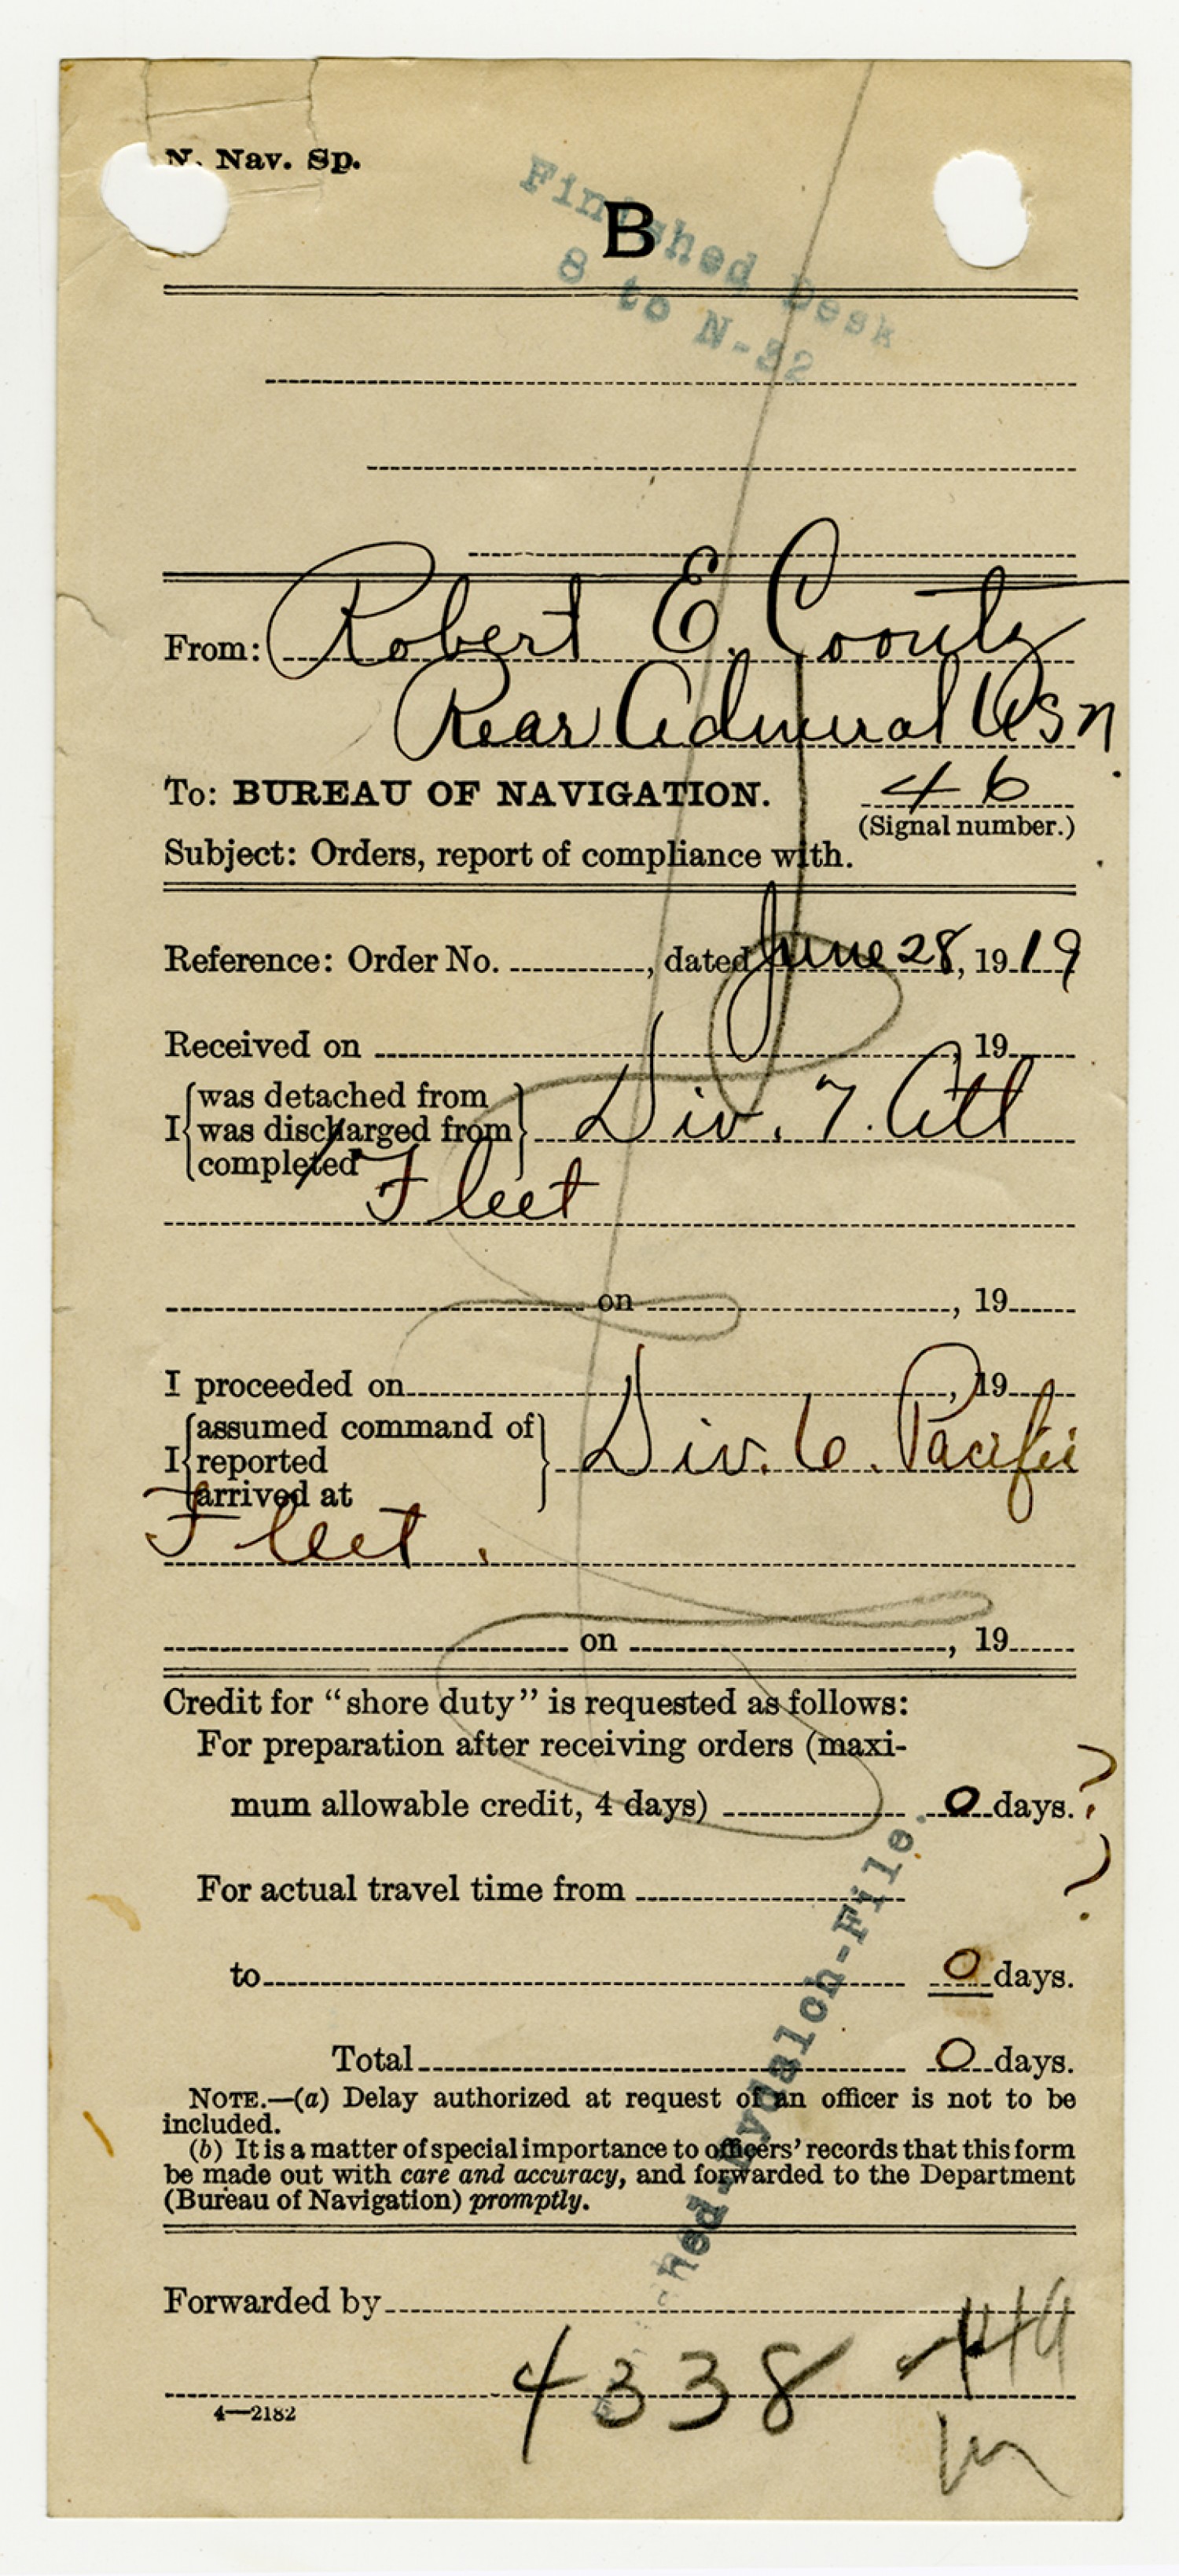 N. Nav. Sp.
Finished Desk
8 to N-32
B
From: Robert E. Coontz
Rear Admiral USN.
To: BUREAU OF NAVIGATION. 46
(Signal number.)
Subject: Orders, report of compliance with.
Reference: Order No. , dated June 28, 1919
Received on , 19
I {was detached from
was discharged from
completed} Div. 7. Atl
Fleet
on , 19
I proceeded on , 19
I {assumed command of
reported
arrived at} Div. 6. Pacific
Fleet.
on , 19
Credit for “shore duty” is requested as follows:
For preparation after receiving orders (maxi-
mum allowable credit, 4 days) 0 days. ?
For actual travel time from ?
to 0 days.
Total 0 days.
NOTE.—(a) Delay authorized at request of an officer is not to be
included.
(b) It is a matter of special importance to officers’ records that this form
be made out with care and accuracy, and forwarded to the Department
(Bureau of Navigation) promptly.
Forwarded by
4338
4—2182